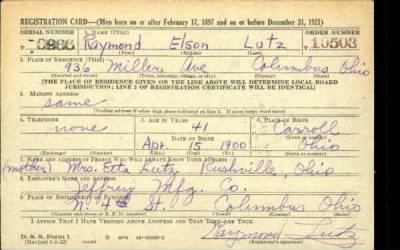 REGISTRATION CARD—(Men born on or after February 17, 1897 and on or before December 31, 1921)
SERIAL NUMBER 1. NAME (Print) ORDER NUMBER
Raymond Elson Lutz 10503
(First) (Middle) (Last)
2. PLACE OF RESIDENCE (Print)
936 Miller Ave Columbus Ohio
(Number and street) (Town, township, village, or city) (County) (State)
[THE PLACE OF RESIDENCE GIVEN ON THE LINE ABOVE WILL DETERMINE LOCAL BOARD
JURISDICTION; LINE 2 OF REGISTRATION CERTIFICATE WILL BE IDENTICAL]
3. MAILING ADDRESS
same
[Mailing address if other than place indicated on line 2. If same insert word same]
4. TELEPHONE 5. AGE IN YEARS 6. PLACE OF BIRTH
none 41 Carroll
DATE OF BIRTH
Apr. 15 1900 Ohio
(Mo.) (Day) (Yr.) (State or country)
7. NAME AND ADDRESS OF PERSON WHO WILL ALWAYS KNOW YOUR ADDRESS
(mother) Mrs. Etta Lutz, Rushville, Ohio
8. EMPLOYER'S NAME AND ADDRESS
Jeffrey Mfg. Co.
9. PLACE OF EMPLOYMENT OR BUSINESS
N. 4th St. Columbus Ohio
(Number and street or R. F. D. number) (Town) (County) (State)
I AFFIRM THAT I HAVE VERIFIED ABOVE ANSWERS AND THAT THEY ARE TRUE.
D. S. S. Form 1
Raymond Lutz